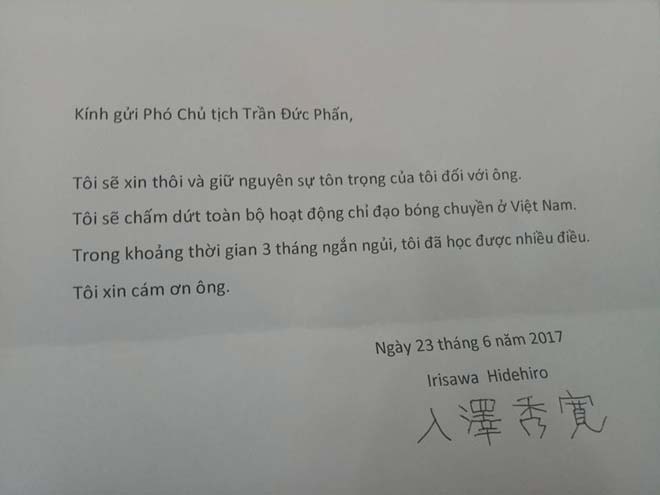 Kính gửi Phó Chủ tịch Trần Đức Phấn,
Tôi sẽ xin thôi và giữ nguyên sự tôn trọng của tôi đối với ông.
Tôi sẽ chấm dứt toàn bộ hoạt động chỉ đạo bóng chuyền ở Việt Nam.
Trong khoảng thời gian 3 tháng ngắn ngủi, tôi đã học được nhiều điều.
Tôi xin cám ơn ông.
Ngày 23 tháng 6 năm 2017
Irisawa Hidehiro
入澤秀寛